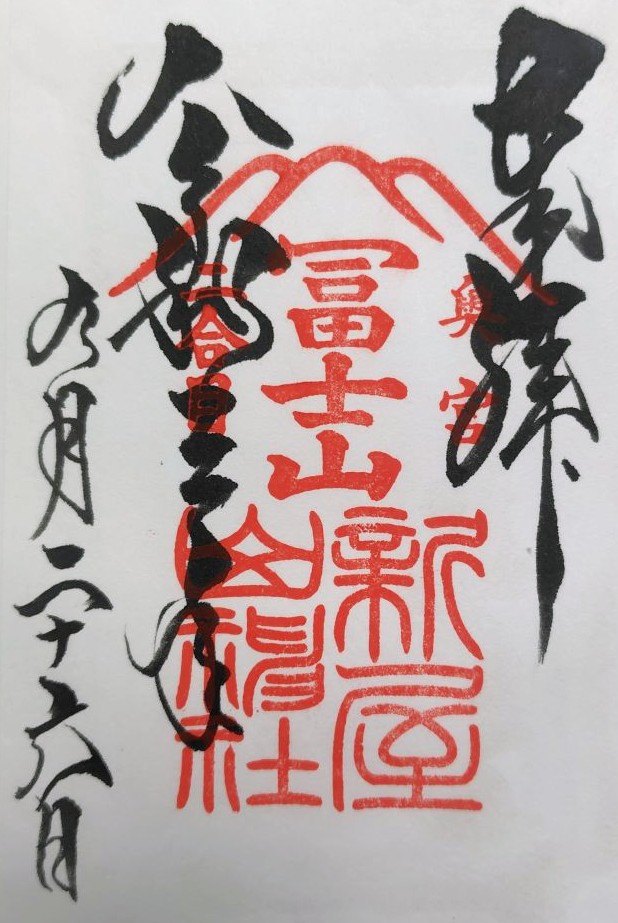 奉拝
奥宮
冨士山
二合目
新屋
山神社
令和三年
九月二十六日